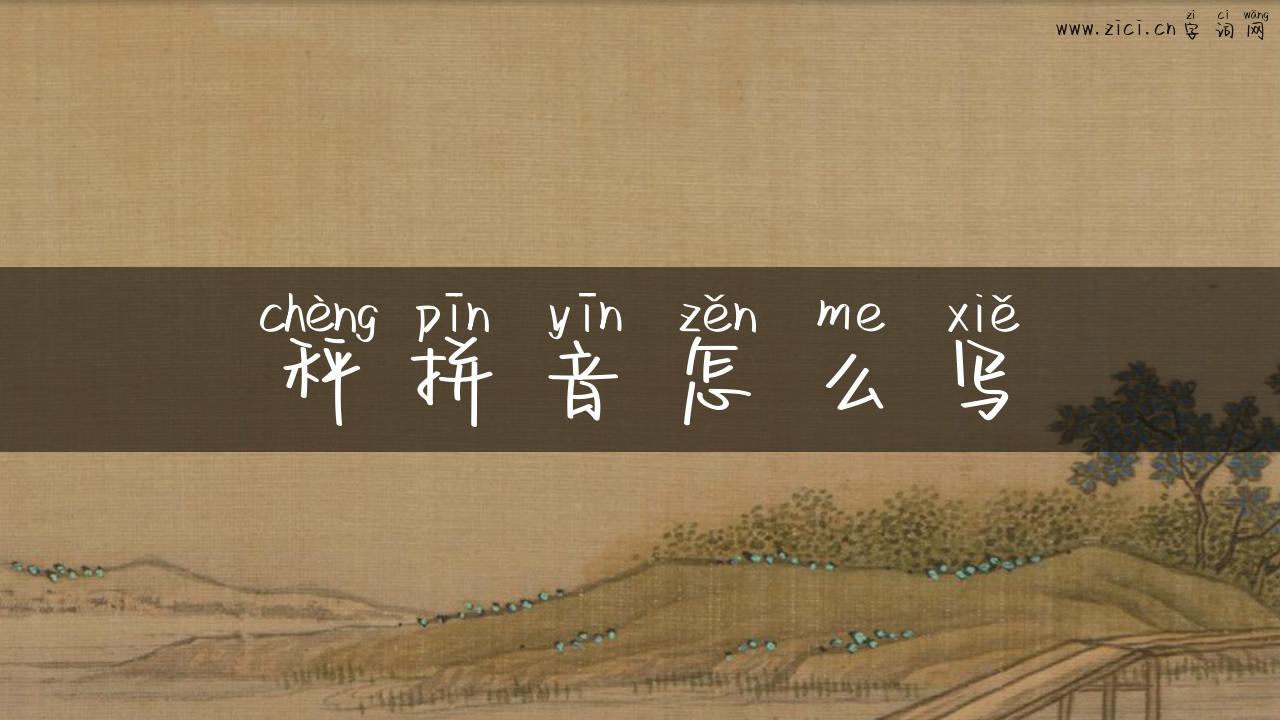 zì cí wǎng
www.zici.cn字词网
chèng pīn yīn zěn me xiě
秤拼音怎么写